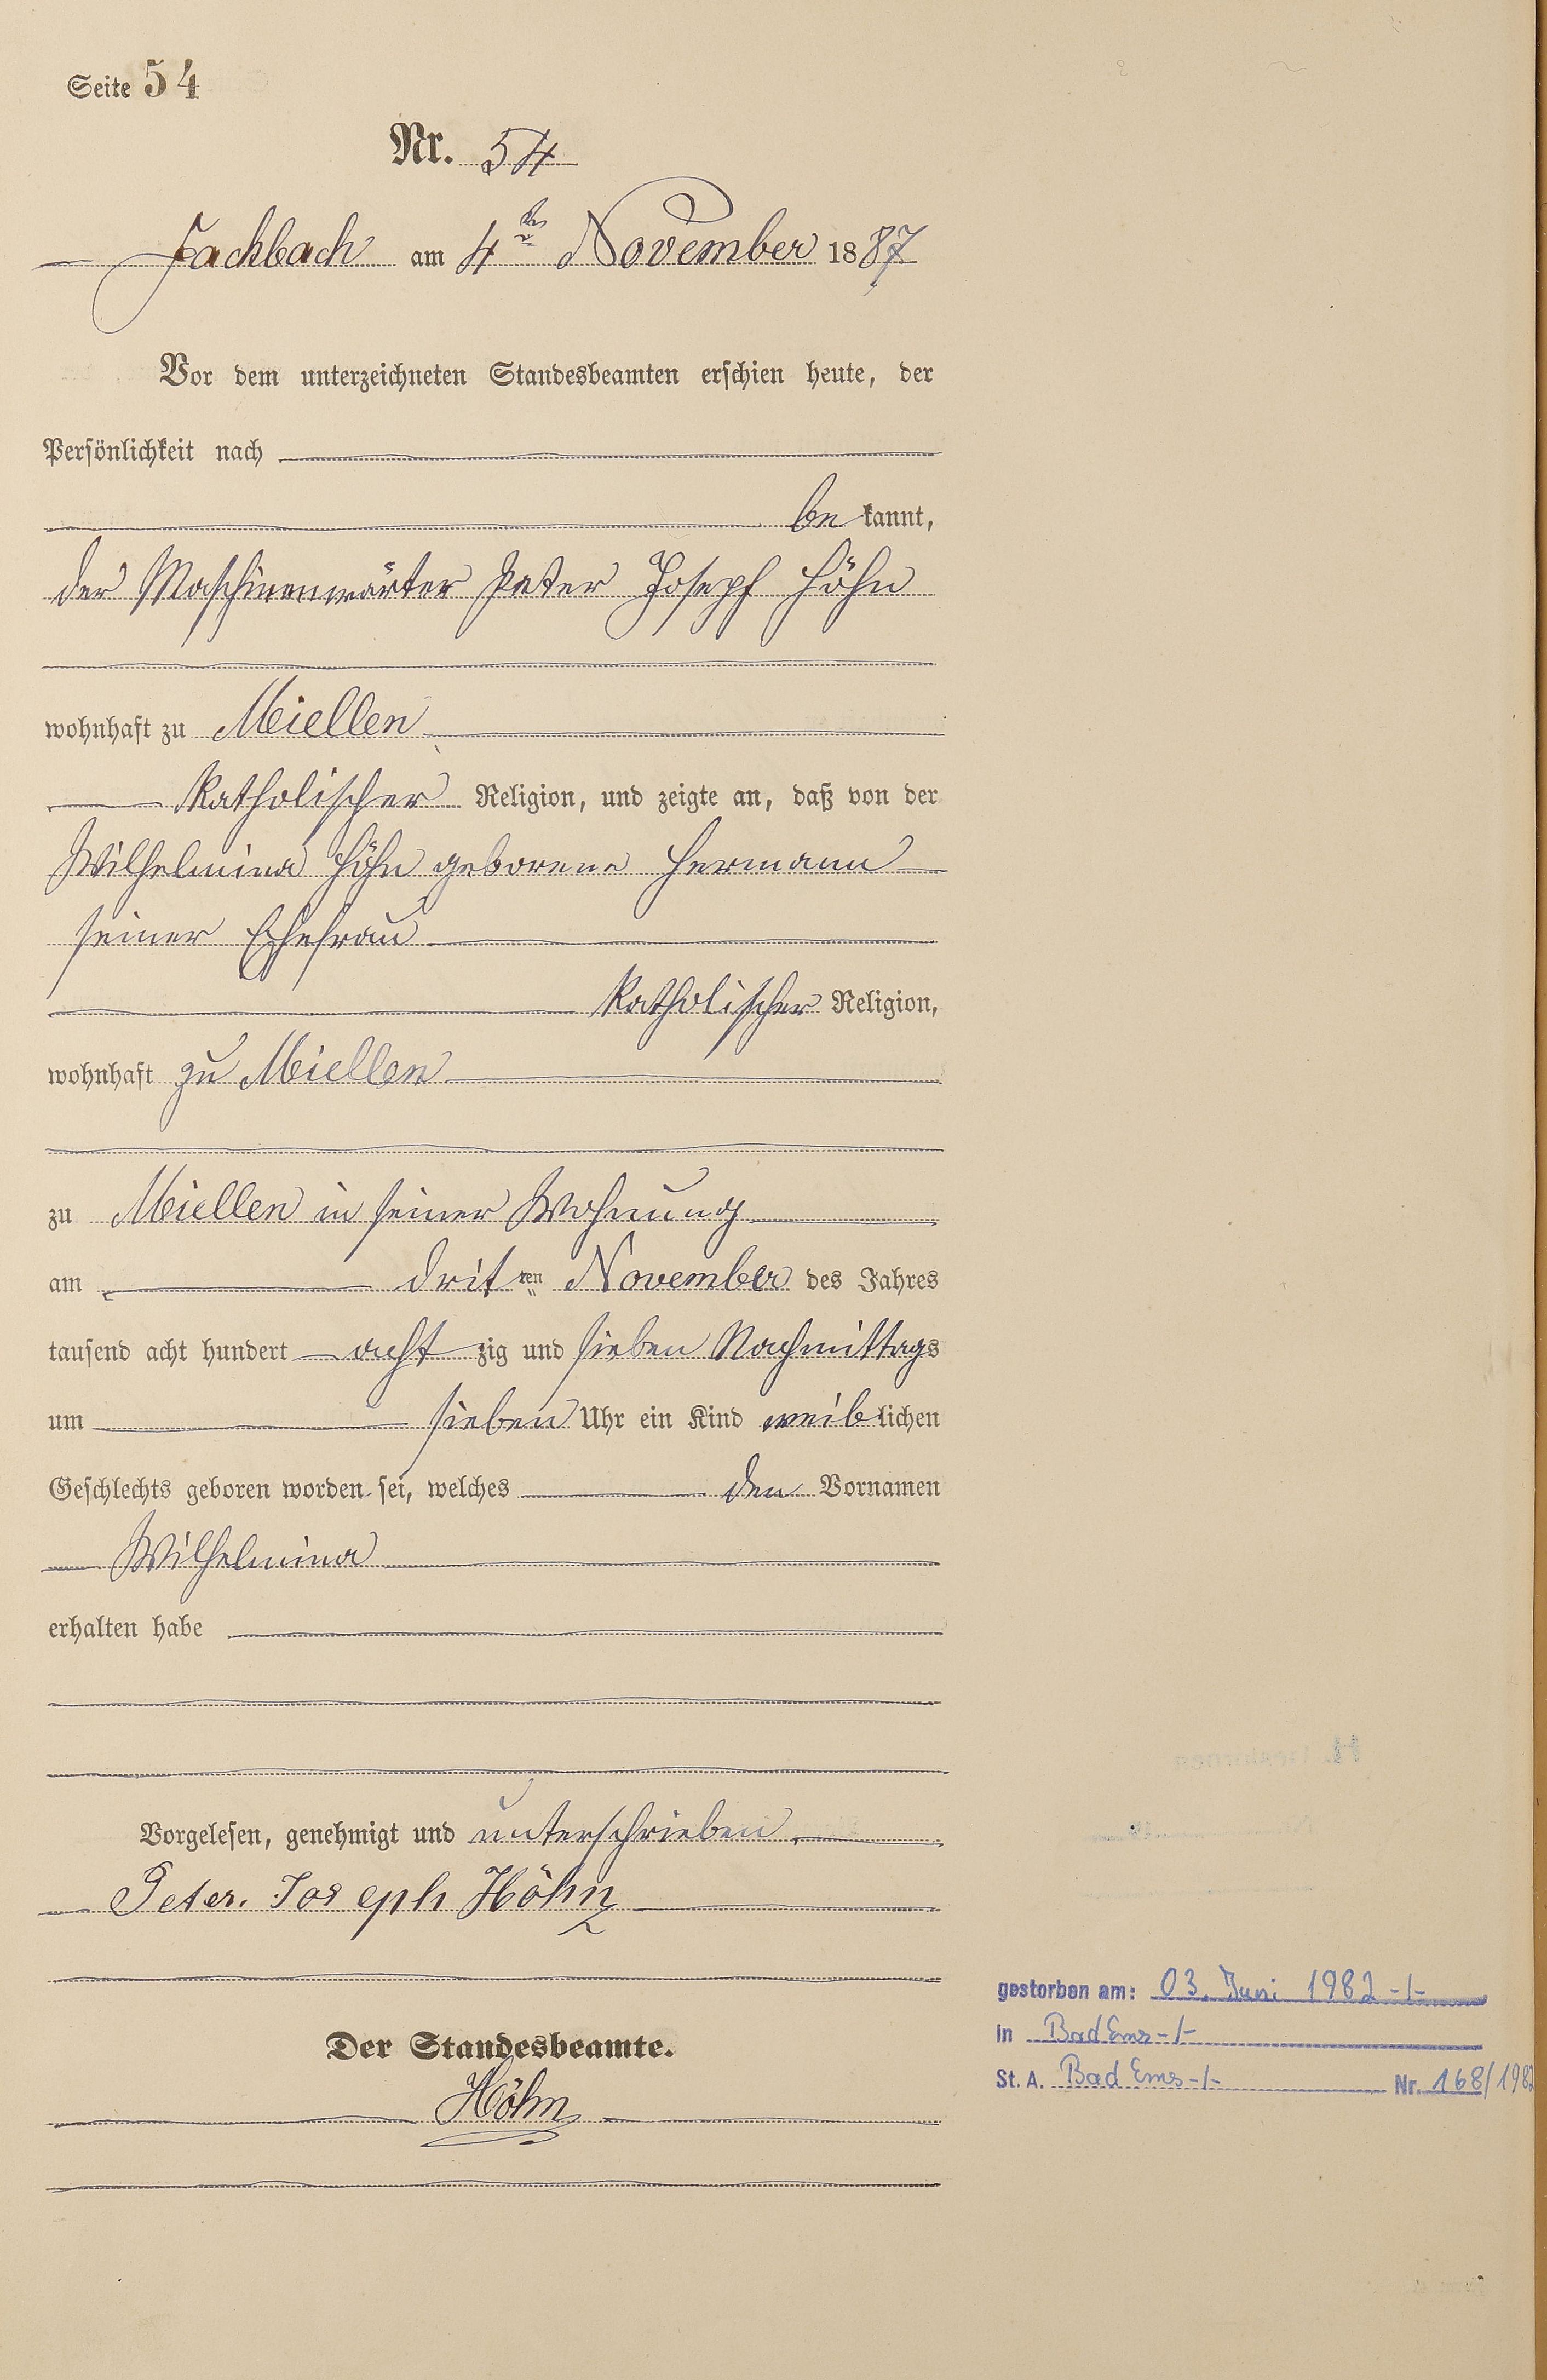 Seite 54
Nr. 54
Fachbach am 4ten November 1887
Vor dem unterzeichneten Standesbeamten erschien heute, der
Persönlichkeit nach
bekannt,
der Maschinenwärter Peter Joseph Höhn
wohnhaft zu Miellen
katholischer Religion, und zeigte an, daß von der
Wilhelmina Höhn geborene Hermann
seiner Ehefrau
katholischer Religion,
wohnhaft zu Miellen
zu Miellen in seiner Wohnung
am dritten November des Jahres
tausend acht hundert achtzig und sieben Nachmittags
um sieben Uhr ein Kind weiblichen
Geschlechts geboren worden sei, welches den Vornamen
Wilhelmina
erhalten habe
Vorgelesen, genehmigt und unterschrieben
Peter. Joseph Höhn
Der Standesbeamte.
Höhn
gestorben am: 03. Juni 1982 -/-
in Bad Ems -/-
St. A. Bad Ems -/- Nr. 168/1982